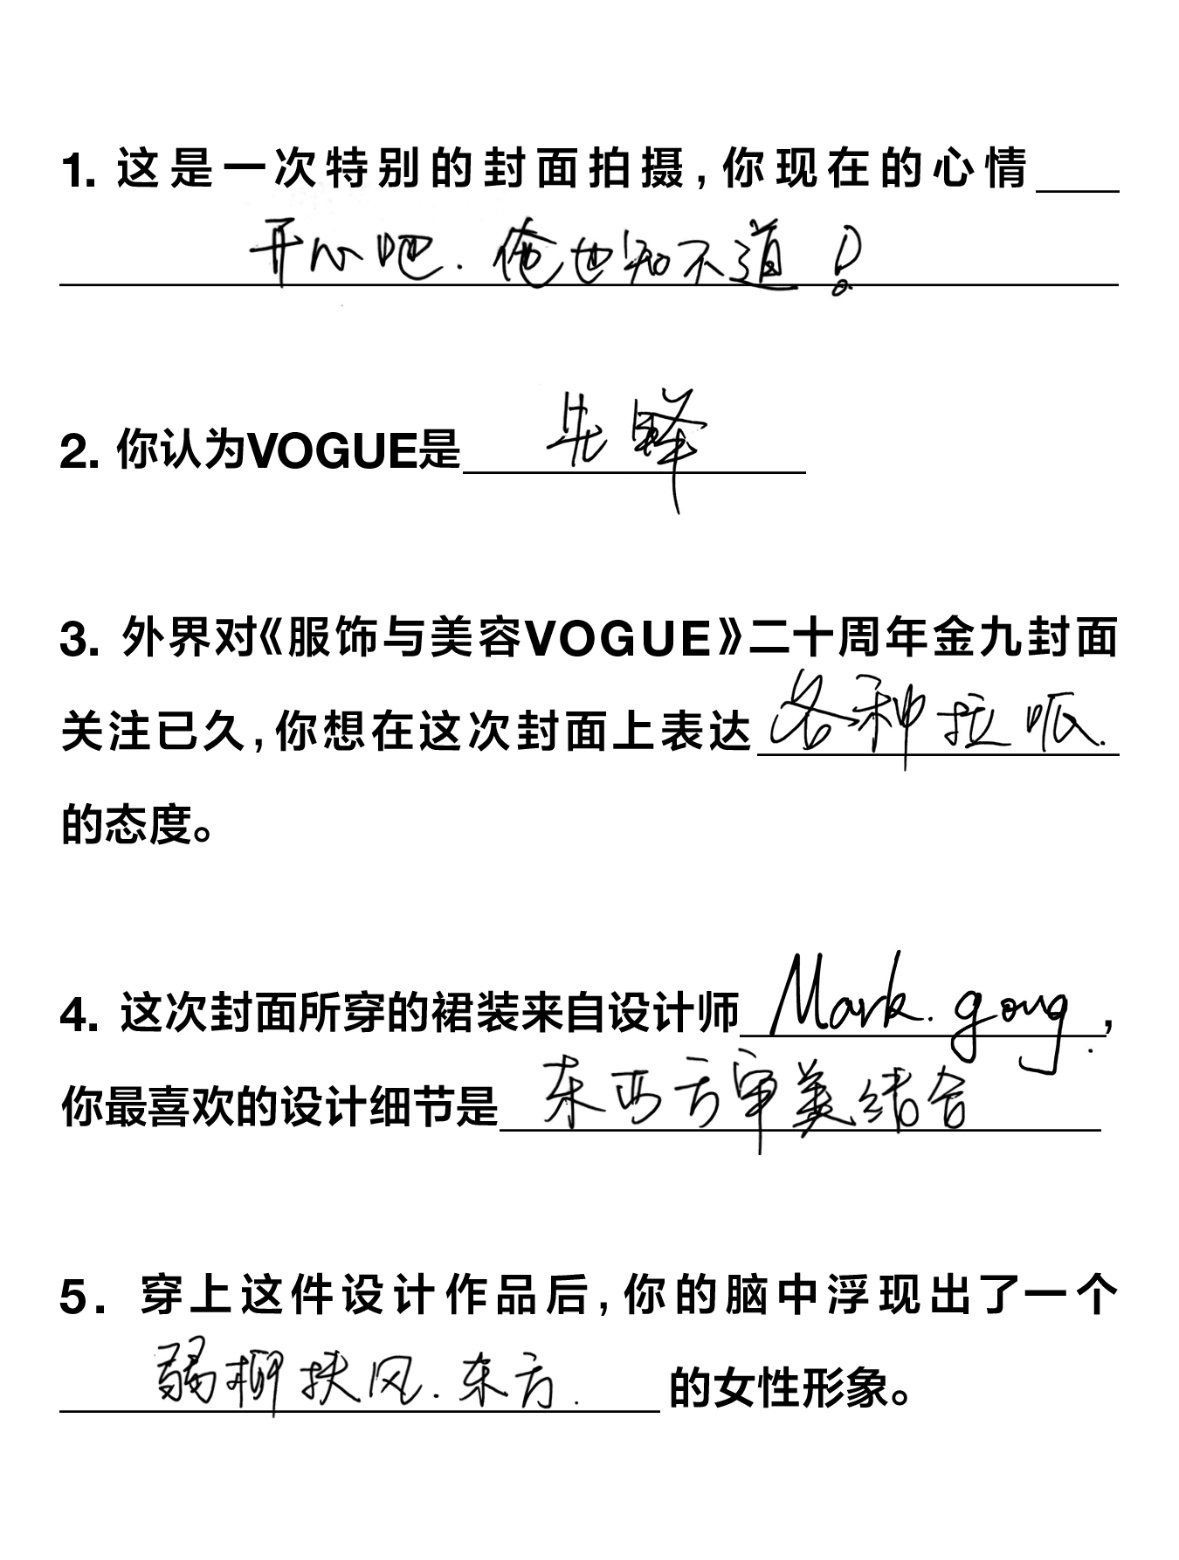 1. 这是一次特别的封面拍摄,你现在的心情
开心吧.俺也知不道!
2. 你认为VOGUE是 先鋒
3. 外界对《服饰与美容VOGUE》二十周年金九封面
关注已久,你想在这次封面上表达 各种拉呱.
的态度。
4. 这次封面所穿的裙装来自设计师 Mark. gong.,
你最喜欢的设计细节是 东西方审美结合
5. 穿上这件设计作品后,你的脑中浮现出了一个
弱柳扶风.东方. 的女性形象。